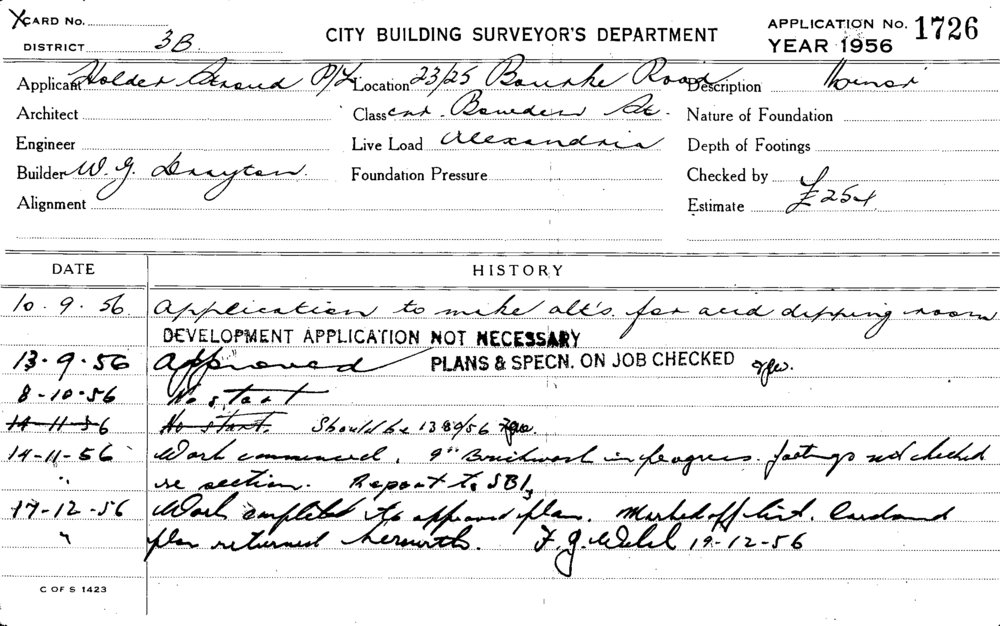 CARD No.
DISTRICT 3B
CITY BUILDING SURVEYOR'S DEPARTMENT
APPLICATION No. 1726
YEAR 1956
Applicant Holder Stroud P/L Location 23/25 Bourke Road Description Minor
Architect Class cnr. Bowden St. Nature of Foundation
Engineer Live Load Alexandria Depth of Footings
Builder W. G. Drayton. Foundation Pressure Checked by
Alignment Estimate £254
DATE HISTORY
10.9.56 Application to make alt's. for acid dipping room
DEVELOPMENT APPLICATION NOT NECESSARY
13.9.56 Approved PLANS & SPECN. ON JOB CHECKED
8-10-56 No start
14-11-56 No start. Should be 1389/56
14-11-56 Work commenced. 9" Brickwork in progress. footings not checked
" re section. Report to SBI
17-12-56 Work completed to approved plan. Marked off list. Card and
" plan returned herewith. F. G. Welsh 19-12-56
C OF S 1423